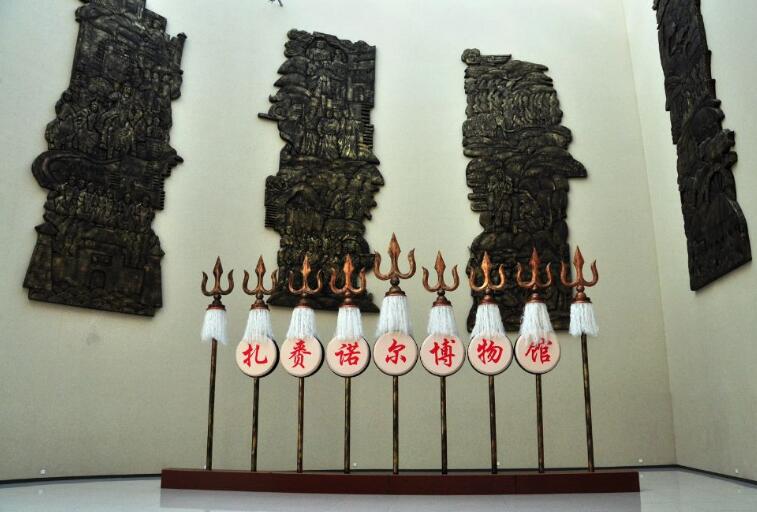 扎赉诺尔博物馆